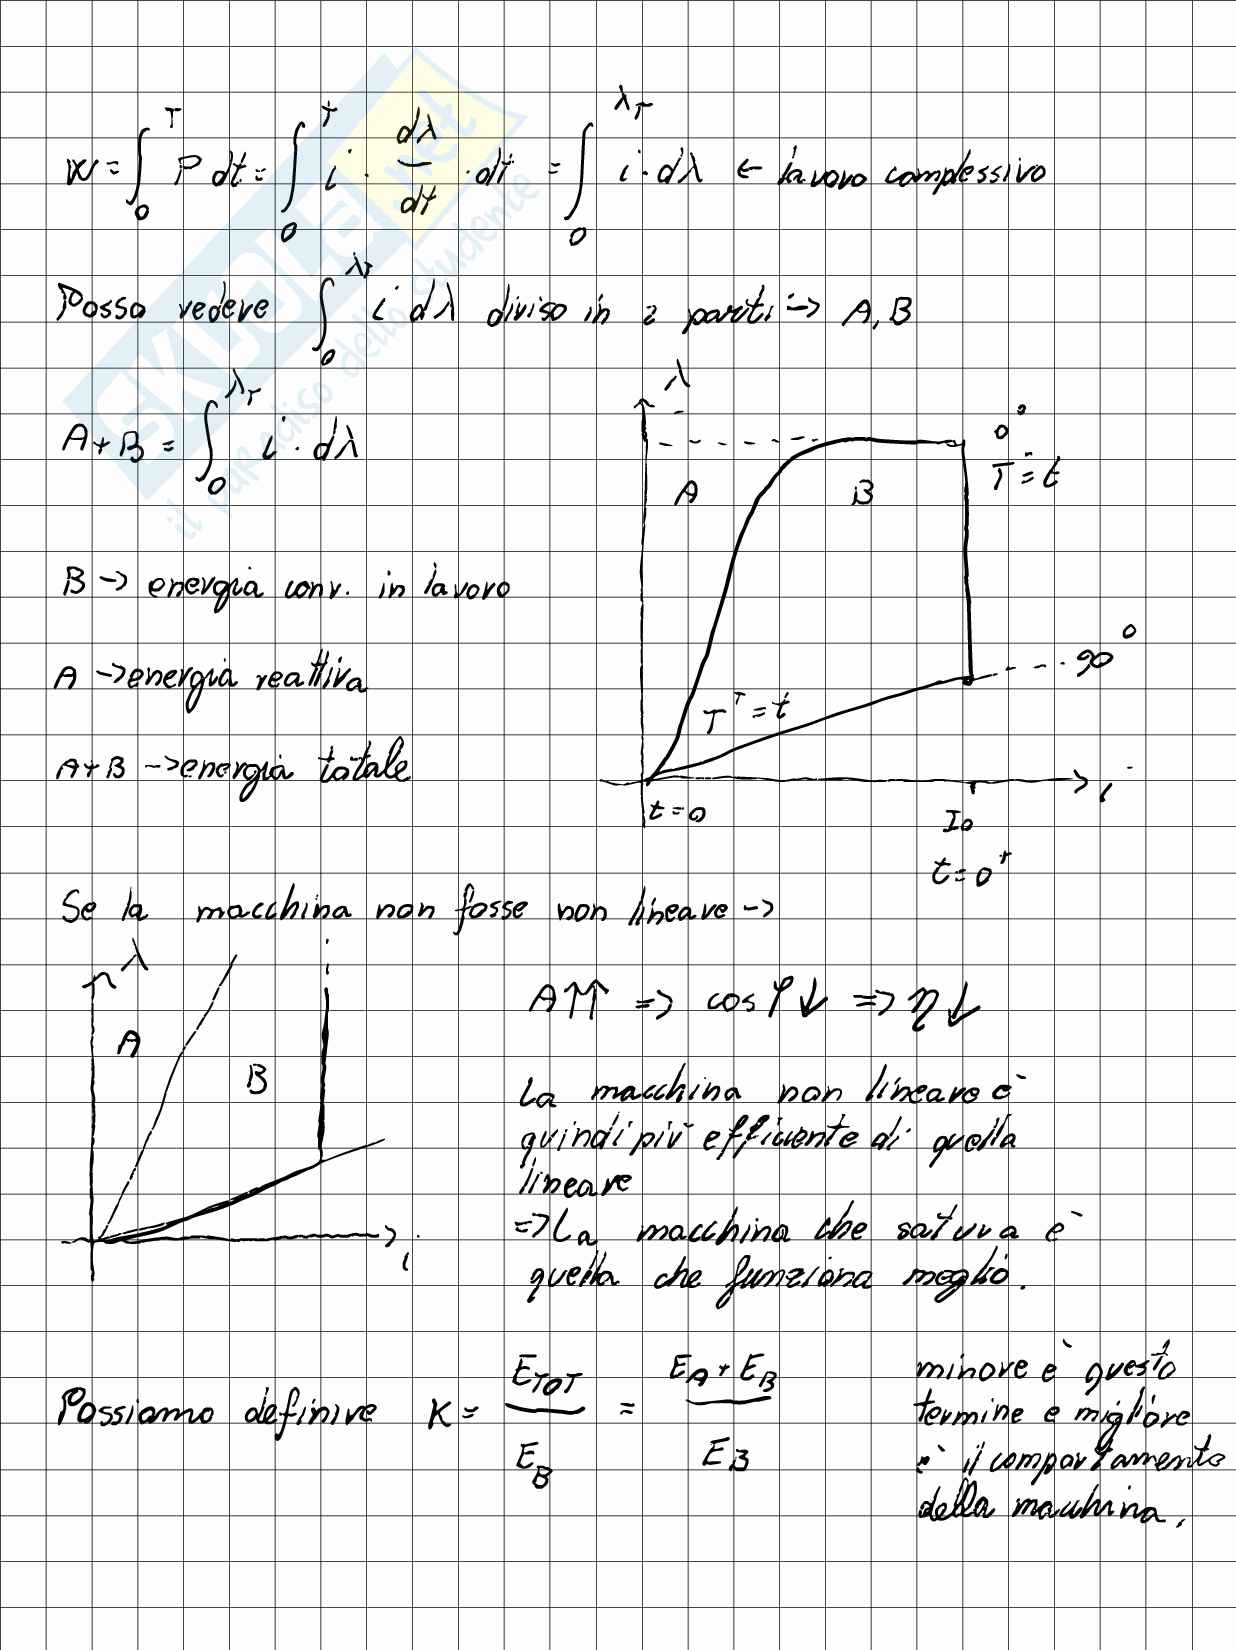 W = ∫₀ᵀ P dt = ∫₀ᵀ i · dλ/dt · dt = ∫₀^λT i · dλ ← lavoro complessivo
Posso vedere ∫₀^λT i dλ diviso in 2 parti → A, B
A+B = ∫₀^λT i · dλ
λ
0°
T⁻ = t
A
B
B → energia conv. in lavoro
90°
A → energia reattiva
T⁺ = t
A+B → energia totale
i
t=0
I0
t=0⁺
Se la macchina non fosse non lineare →
λ
A
B
i
A↑↑ => cosφ↓ => η↓
La macchina non lineare è
quindi più efficiente di quella
lineare
=> La macchina che satura è
quella che funziona meglio.
Possiamo definire K = E_TOT / E_B = E_A + E_B / E_B
minore è questo
termine e migliore
è il comportamento
della macchina.
SKUOLA.net
il paradiso dello studente